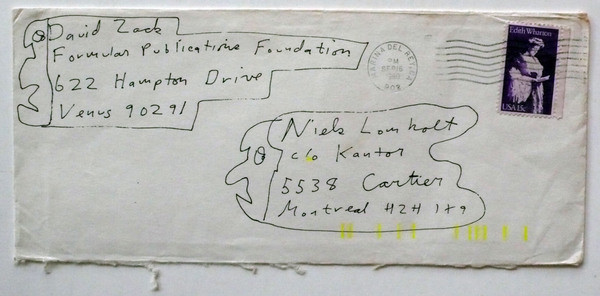 David Zack
Formular Publications Foundation
622 Hampton Drive
Venus 90291
MARINA DEL REY, CA
PM
902
Edith Wharton
USA 15c
Niels Lomholt
c/o Kantor
5538 Cartier
Montreal H2H 1X9